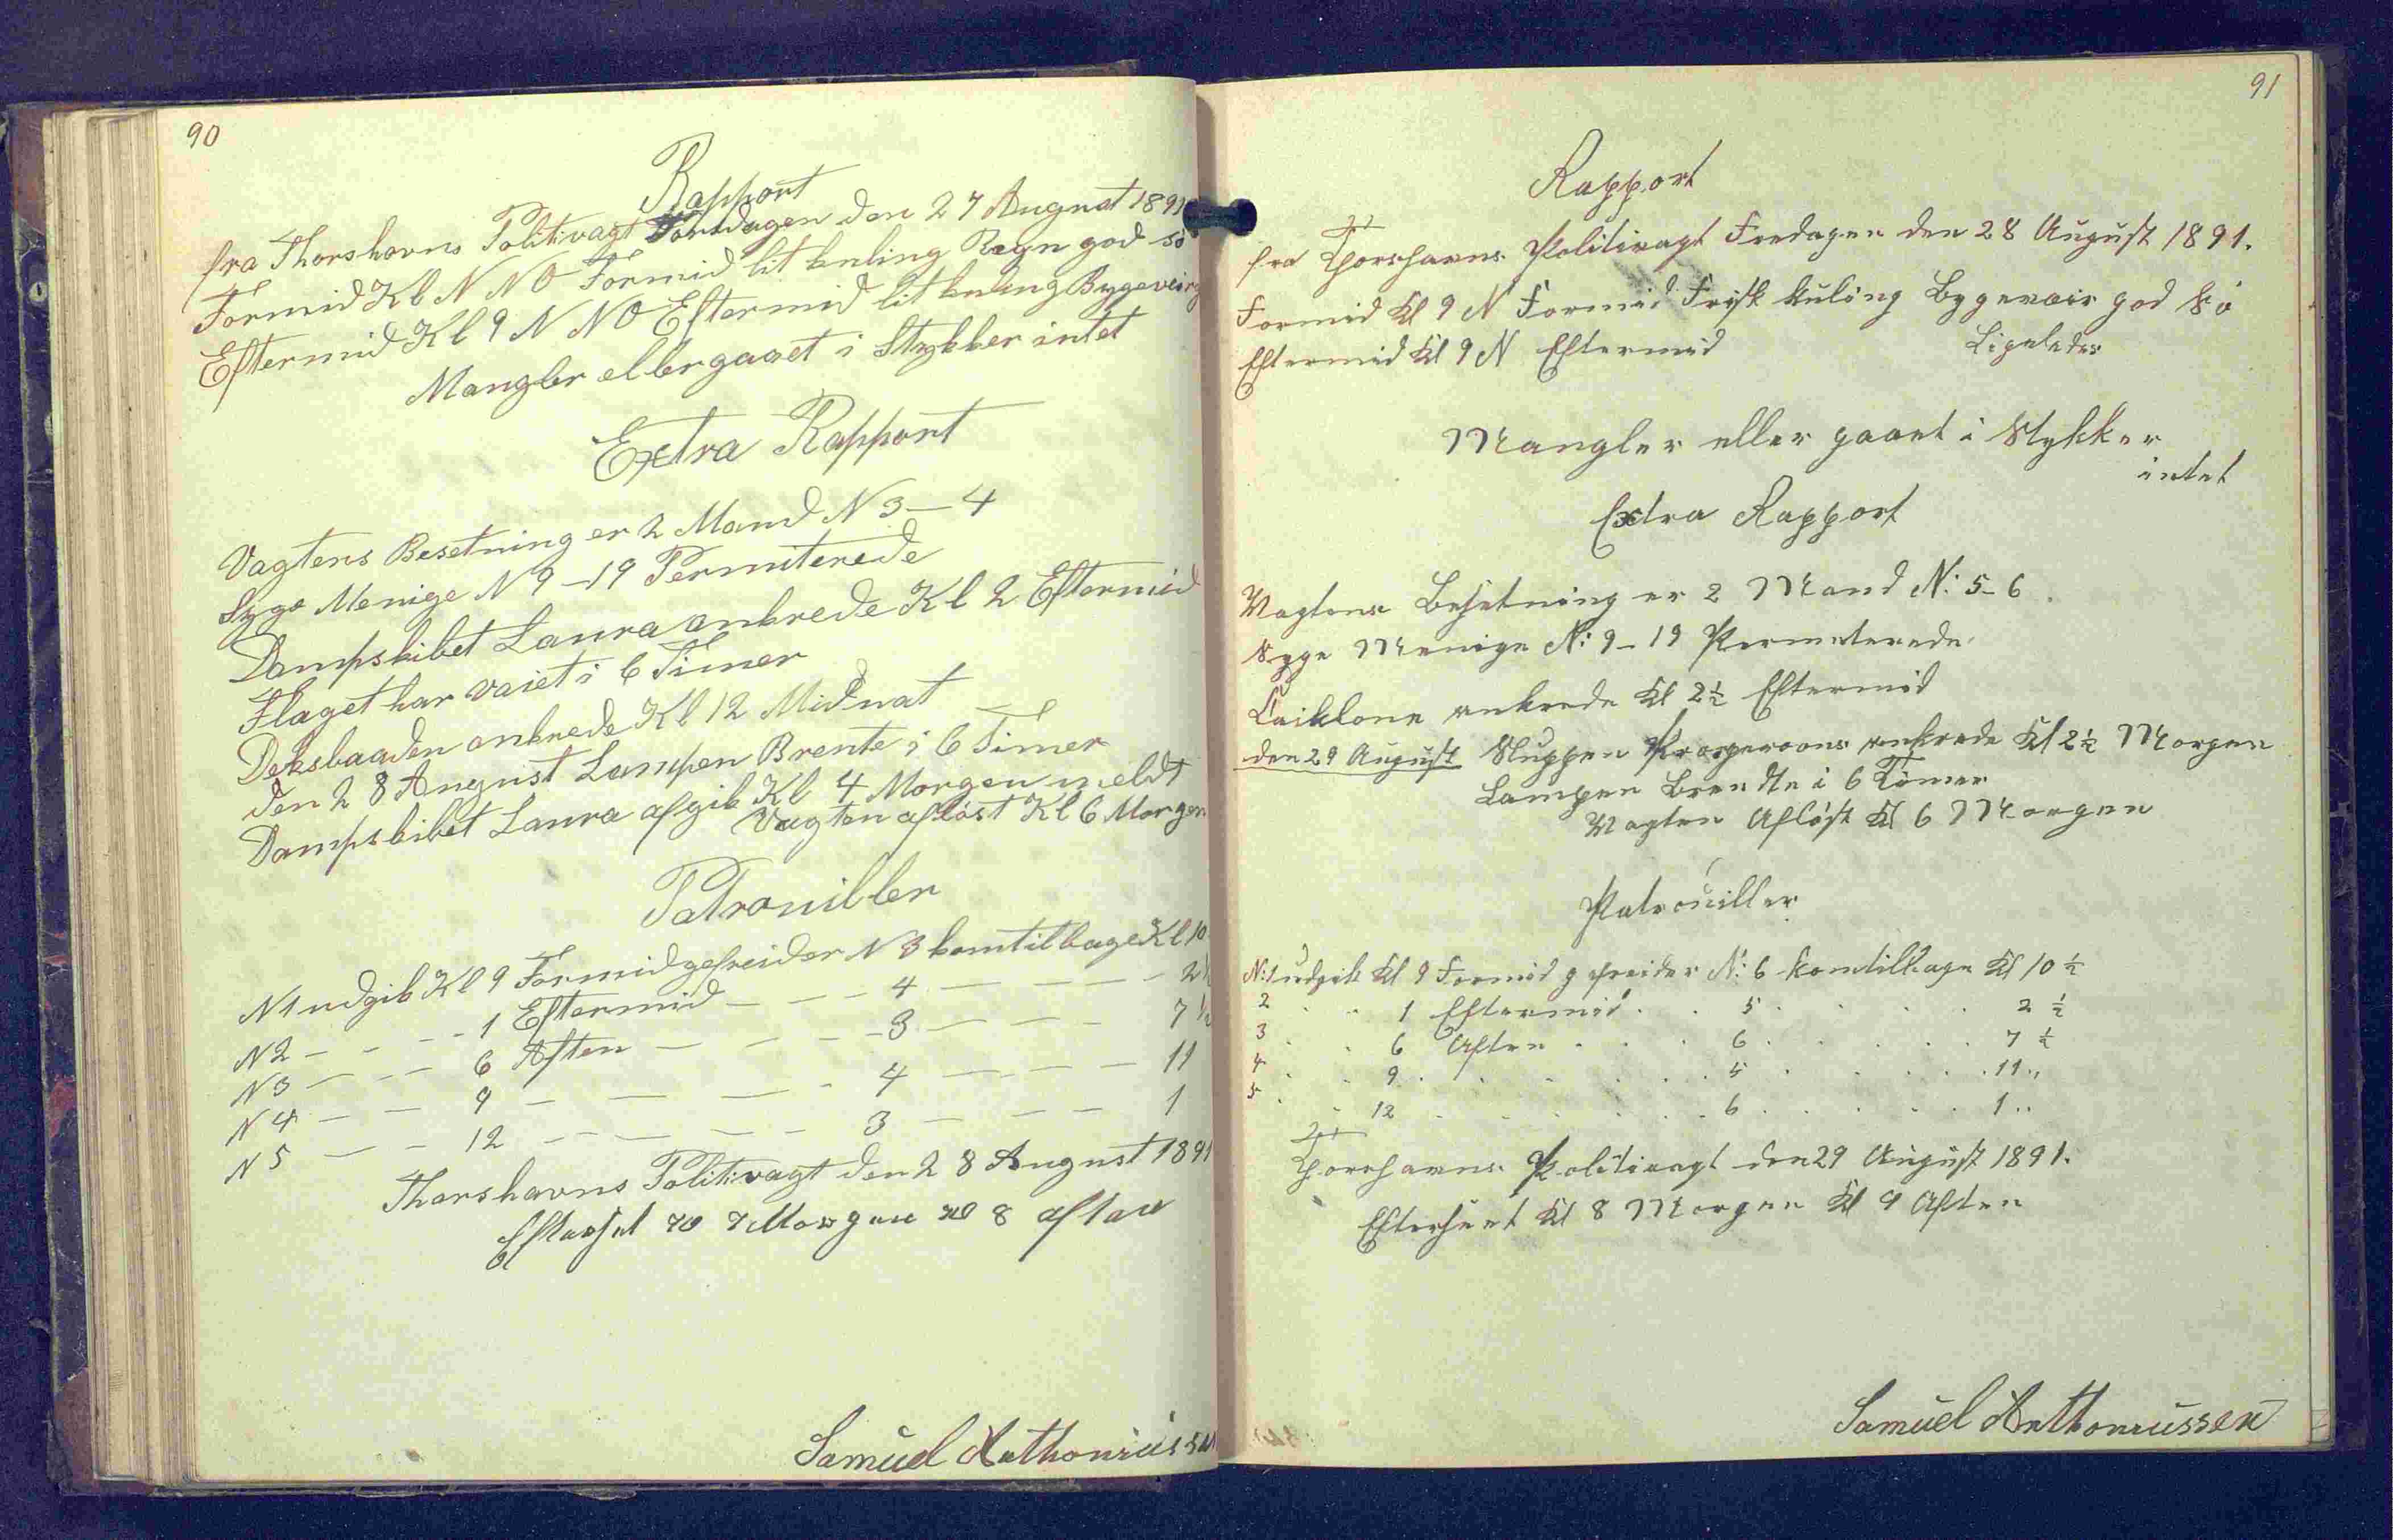 90
Rapport
fra Thorshavns Politivagt Torsdagen den 27 August 1891
Formid Kl N N O Formid lit kuling Regn god sö
Eftermid Kl 9 N N O Eftermid lit kuling Bygeveir
Mangler eller gaaet i Stykker intet
Extra Rapport
Vagtens Besetning er 2 Mand N 3 – 4
Syge Menige N 9 – 19 Permiterede
Dampskibet Laura ankrede Kl 2 Eftermid
Flaget har vaiet i 6 Timer
Deksbaaden ankrede Kl 12 Midnat
den 28 August Lampen Brente i 6 Timer
Dampskibet Laura afgik Kl 4 Morgen meldt
Vagten aflöst Kl 6 Morgen
Patrouiller
N 1 udgik Kl 9 Formid gefreider N 3 kom tilbage Kl 10
N 2 – – – 1 Eftermid – – – 4 – – – – 2½
N 3 – – – 6 Aften – – – 3 – – – – 7½
N 4 – – 9 – – – – 4 – – – – 11
N 5 – – 12 – – – – 3 – – – 1
Thorshavns Politivagt den 28 August 1891
Efterset Kl 7 Morgen Kl 8 aften
Samuel Anthoniussen
91
Rapport
fra Thorshavns Politivagt Fredagen den 28 August 1891.
Formid Kl 9 N Formid Frisk kuling Bygevair god Sö
Eftermid Kl 9 N Eftermid Ligeledes
Mangler eller gaaet i Stykker
intet
Extra Rapport
Vagtens Besetning er 2 Mand N: 5 – 6.
Syge Menige N: 9 – 19 Permeterede
ankrede Kl 2½ Eftermid
den 29 August Sluppen ankrede Kl 2½ Morgen
Lampen Brendte i 6 Timer
Vagten Aflöst Kl 6 Morgen
Patrouiller
N: 1 udgik Kl 9 Formid gefreider N: 6 kom tilbage Kl 10 ½
2 . . 1 Eftermid . . 5 . . . . 2 ½
3 . . 6 Aften . . . 6 . . . . . 7 ½
4 . . 9 . . . . . 5 . . . . 11 "
5 . . 12 . . . . . 6 . . . . . 1 "
Thorshavns Politivagt den 29 August 1891.
Efterseet Kl 8 Morgen Kl 9 Aften
Samuel Anthoniussen